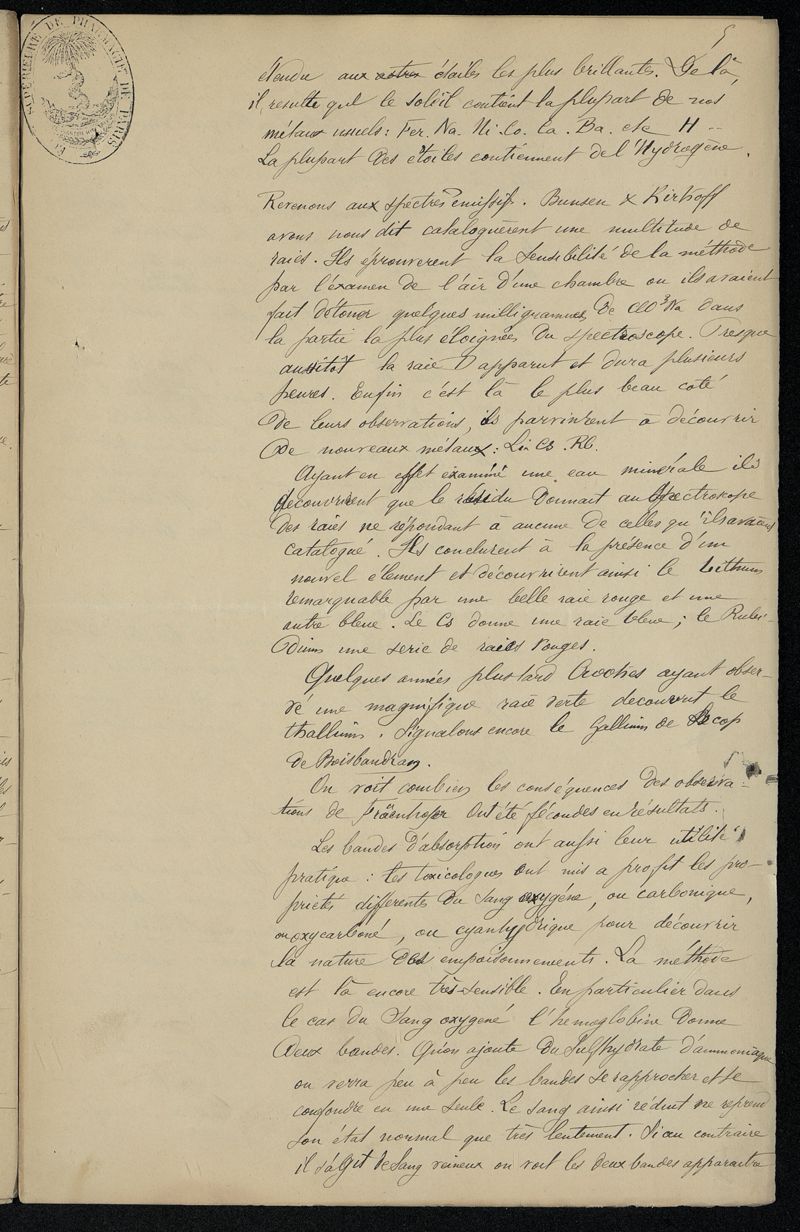 5
SUPÉRIEURE DE PHARMACIE DE PARIS
étendu aux autres étoiles les plus brillantes. De là,
il resulte que le soleil contient la plupart de nos
métaux usuels : Fer. Na. Ni. Co. Ca. Ba. etc H --
La plupart des étoiles contiennent de l'Hydrogène.
Revenons aux spectres emissifs. Bunsen & Kirhoff
avons nous dit cataloguèrent une multitude de
raies. Ils éprouverent la sensibilité de la méthode
par l'examen de l'air d'une chambre ou ils avaient
fait détoner quelques milligrammes de ClO³Na dans
la partie la plus éloignée du spectroscope. Presque
aussitôt la raie D apparut et dura plusieurs
heures. Enfin c'est là le plus beau coté
de leurs observations, ils parvinrent à découvrir
de nouveaux métaux : Li Cs. Rb.
Ayant en effet examiné une eau minérale ils
decouvrirent que le résidu donnait au spectroscope
des raies ne répondant à aucune de celles qu'ils avaient
catalogué. Ils conclurent à la présence d'un
nouvel élement et découvrirent ainsi le Lithium
remarquable par une belle raie rouge et une
autre bleue. Le Cs donne une raie bleue ; le Rubi-
dium une serie de raies rouges.
Quelques années plus tard Crookes ayant obser-
vé une magnifique raie verte decouvrit le
thallium. Signalons encore le Gallium de Lecoq
de Boisbaudran.
On voit combien les conséquences des observa-
tions de Fraenhofer ont été fécondes en résultats.
Les bandes d'absorption ont aussi leur utilité
pratique : les toxicologues ont mis a profit les pro-
priétés differentes du sang oxygéné, ou carbonique,
ou oxycarboné, ou cyanhydrique pour découvrir
la nature des empoisonnements. La méthode
est là encore très sensible. En particulier dans
le cas du sang oxygené l'hemoglobine donne
deux bandes. Qu'on ajoute du sulfhydrate d'ammoniaque
on verra peu à peu les bandes se rapprocher et se
confondre en une seule. Le sang ainsi réduit ne reprend
son état normal que très lentement. Si au contraire
il s'agit de sang veineux on voit les deux bandes apparaitre